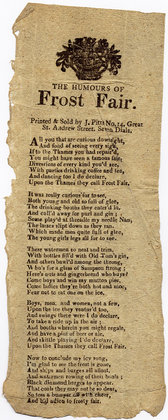 THE HUMOURS OF
Frost Fair.
Printed & Sold by J. Pitts No. 14, Great
St. Andrew Street, Seven Dials.
All you that are curious downright,
And fond of seeing every sight,
If to the Thames you had repair'd,
You might have seen a famous fair,
Diversions of every kind you'd see,
With parties drinking coffee and tea,
And dancing too I do declare,
Upon the Thames they call Frost Fair.
It was really curious for to see,
Both young and old so full of glee,
The drinking booths they enter'd in,
And call'd away for purl and gin;
Some play'd at threadle my needle Nan,
The lasses slipt down as they ran,
Which made men quite full of glee,
The young girls legs all for to see.
There watermen so neat and trim,
With bottles fill'd with Old Tom's gin,
And others bawl'd among the throng,
Who's for a glass of Sampson strong;
Here's nuts and gingerbread who buys?
Come boys and win my mutton pies,
Come ladies they're both hot and nice,
Fear not to eat on the ice.
Boys, men and women, not a few,
Upon the ice they ventur'd too,
And swings there were I do declare,
To take a ride up in the air,
And booths wherein you might regale,
And have a pint of beer or ale,
And skittle playing I do declare,
Upon the Thames they call Frost Fair.
Now to conclude my icy song,
I'm glad to see the frost is gone,
And ships and barges all afloat,
And watermen rowing of their boats;
Black diamond barges to appear,
That coals they may not be so dear,
So toss a bumper off with cheer,
And bid adieu to frosty fair.